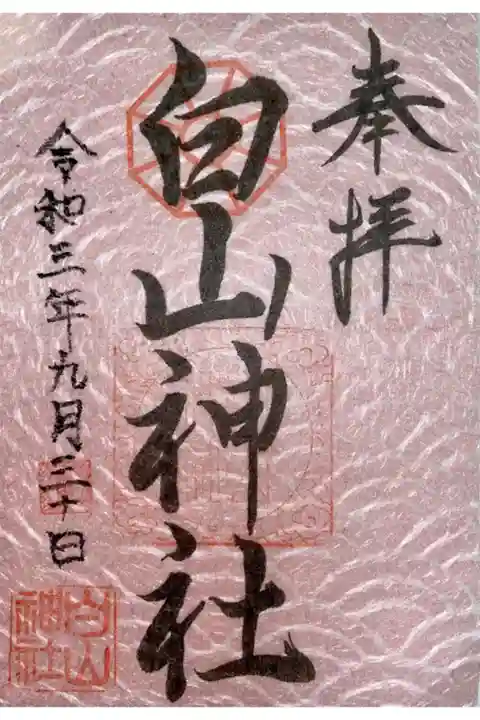 奉拝
白山神社
令和三年九月三十日
白山
神社